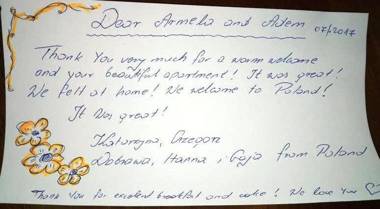 Dear Armela and Adem 07/2017
Thank You very much for a warm welcome
and your beautiful apartment! It was great!
We felt at home! We welcome to Poland!
It was great!
Katarzyna, Grzegorz
Dobrawa, Hanna i Gaja from Poland
Thank You for excelent breakfast and cake! We love You